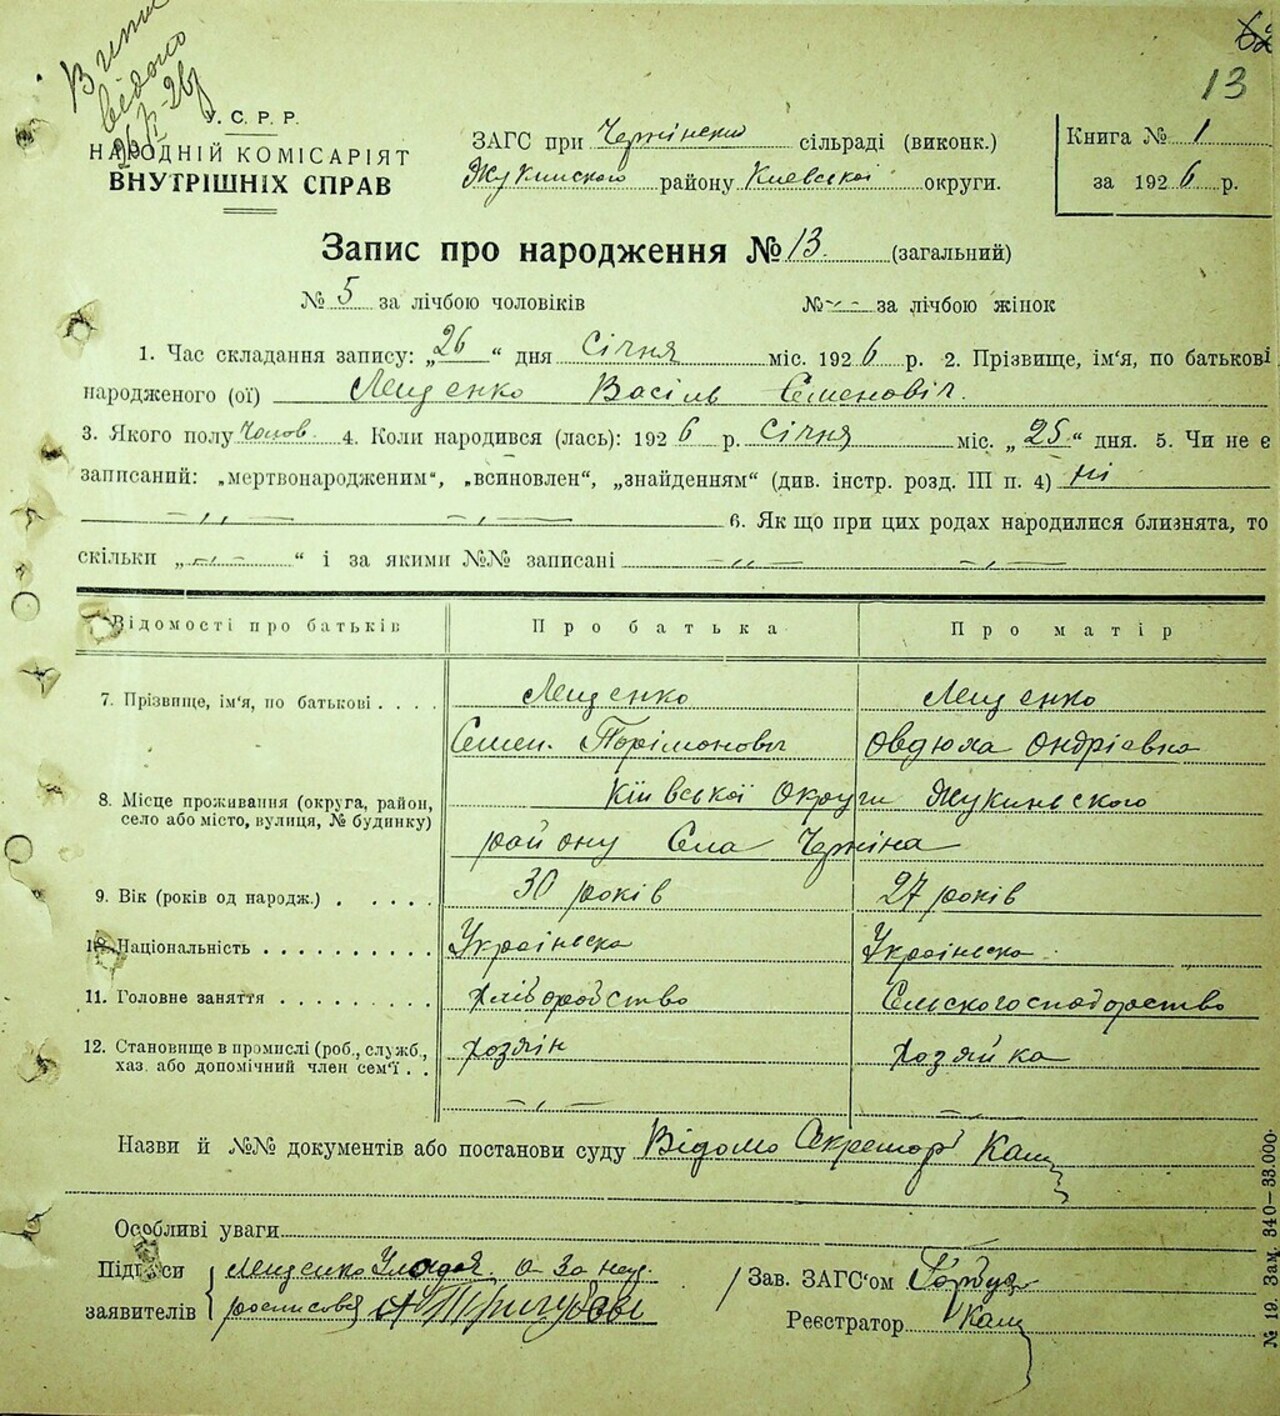 62
13
Випис
відано
26/I-26р
У. С. Р. Р.
НАРОДНІЙ КОМІСАРІЯТ
ВНУТРІШНІХ СПРАВ
ЗАГС при Чернінски сільраді (виконк.)
Жукинского району Киевської округи.
Книга № 1
за 1926 р.
Запис про народження № 13. (загальний)
№ 5 за лічбою чоловіків № -,- за лічбою жінок
1. Час складання запису: „26“ дня Січня міс. 1926 р. 2. Прізвище, ім'я, по батькові
народженого (ої) Лещенко Василь Семеновіч.
3. Якого полу Чолов. 4. Коли народився (лась): 1926 р. Січня міс. „25“ дня. 5. Чи не є
записаний: „мертвонародженим“, „всиновлен“, „знайденням“ (див. інстр. розд. III п. 4) ні
-,,- -,- 6. Як що при цих родах народилися близнята, то
скільки „-,-“ і за якими №№ записані -,,- -,-
Відомості про батьків Про батька Про матір
7. Прізвище, ім'я, по батькові . . . . Лещенко Лещенко
Семен. Овдюха Ондріевна
8. Місце проживання (округа, район, Київської Округи Жукинського
село або місто, вулиця, № будинку) району Села Черніна
9. Вік (років од народж.) . . . . . 30 років 27 років
10. Національність . . . . . . . . . . Українска Українска
11. Головне заняття . . . . . . . . . Хліборобство Сельскогосподарство
12. Становище в промислі (роб., служб., Хозяін Хозяйка
хаз. або допомічний член сем'ї . . -,- -,-
Назви й №№ документів або постанови суду Відомо Секретар Кащ
Особливі уваги
Підписи Лещенко а за неї Зав. ЗАГС'ом
заявителів росписовся Реєстратор Кащ
№ 19. Зам. 340—33.000.